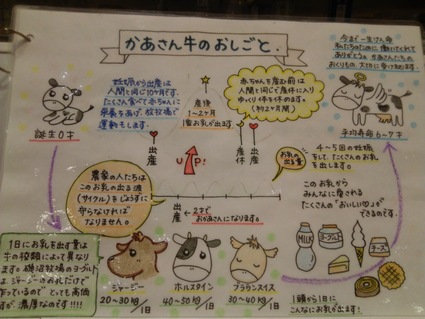 かあさん牛のおしごと.
今まで一生けん命
私たちのために働いてくれて
ありがとう。かあさんたちの
おくりもの大切に受け取ります。
妊娠から出産は
人間と同じ10ヶ月です。
たくさん食べて赤ちゃんに
栄養をあげ、放牧場で
運動もします。
産後
1~2ヶ月
1番お乳が出ます
赤ちゃんを産む前は
人間と同じで産休に入り
ゆっくり体を休めます。
(約2ヶ月間)
誕生0才
平均寿命6~7才
出産
UP!
産休
出産
お乳の出る量
4~5回の妊娠
をして、たくさんのお乳
を出します。
このお乳から
みんなに愛される
たくさんの"おいしい♡"が
できるのです。
農家の人たちは
このお乳の出る波
(サイクル)をじょうずに
守らなければ
なりません。
出産
2才で
おかあさんになります。
1日にお乳を出す量は
牛の種類によって異なり
ます。磯沼牧場のヨーグルト
は、ジャージーさんのお乳だけで
作っているので とっても高価
ですが 濃厚なのです!!!!
ジャージー
20~30kg/1日
ホルスタイン
40~50kg/1日
ブラウンスイス
30~40kg/1日
MILK
ヨーグルト
チーズ
1頭から1日に
こんなにお乳が出ます!